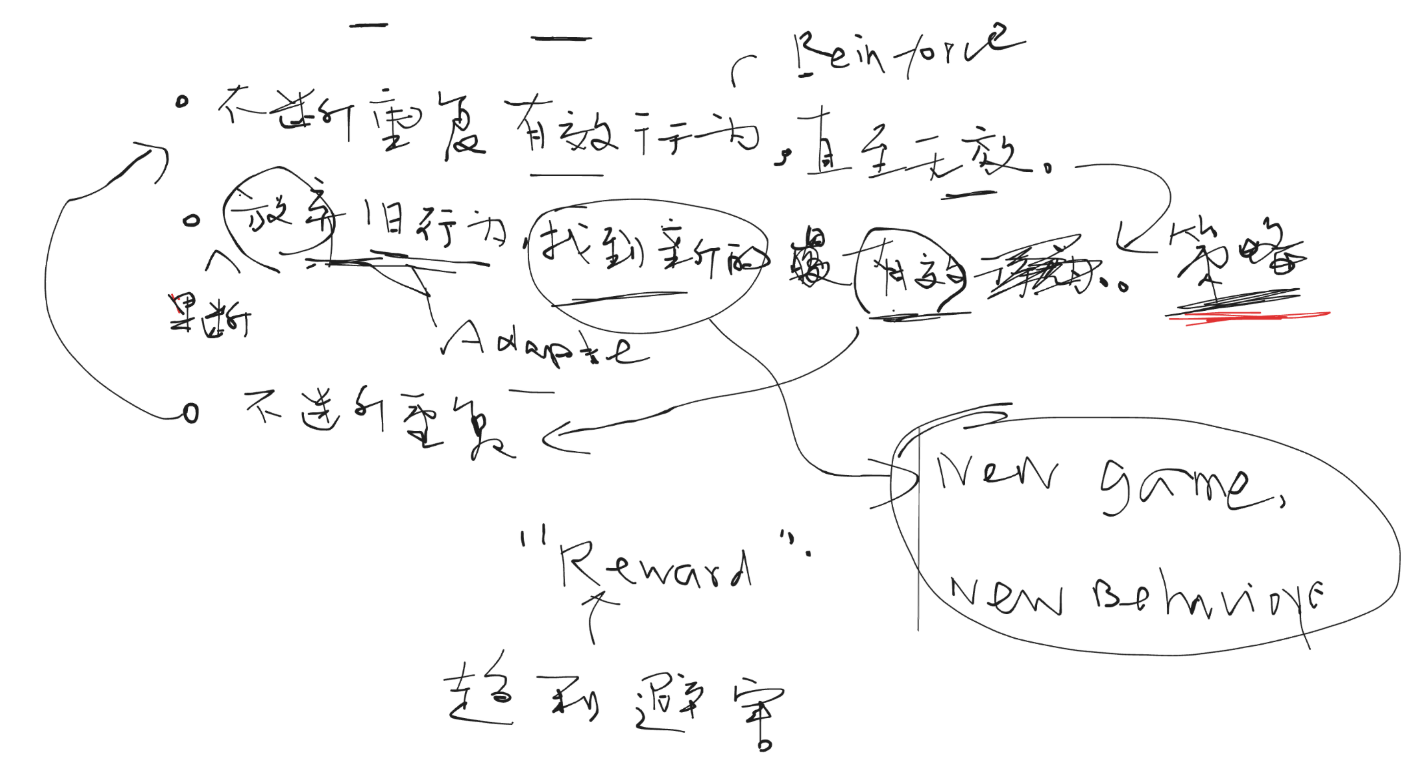 Reinforce
不断重复有效行为，直至无效。
放弃旧行为，找到新的最有效 策略
果断
Adapte
不断重复
New game,
"Reward".
New Behaviors
趋利避害